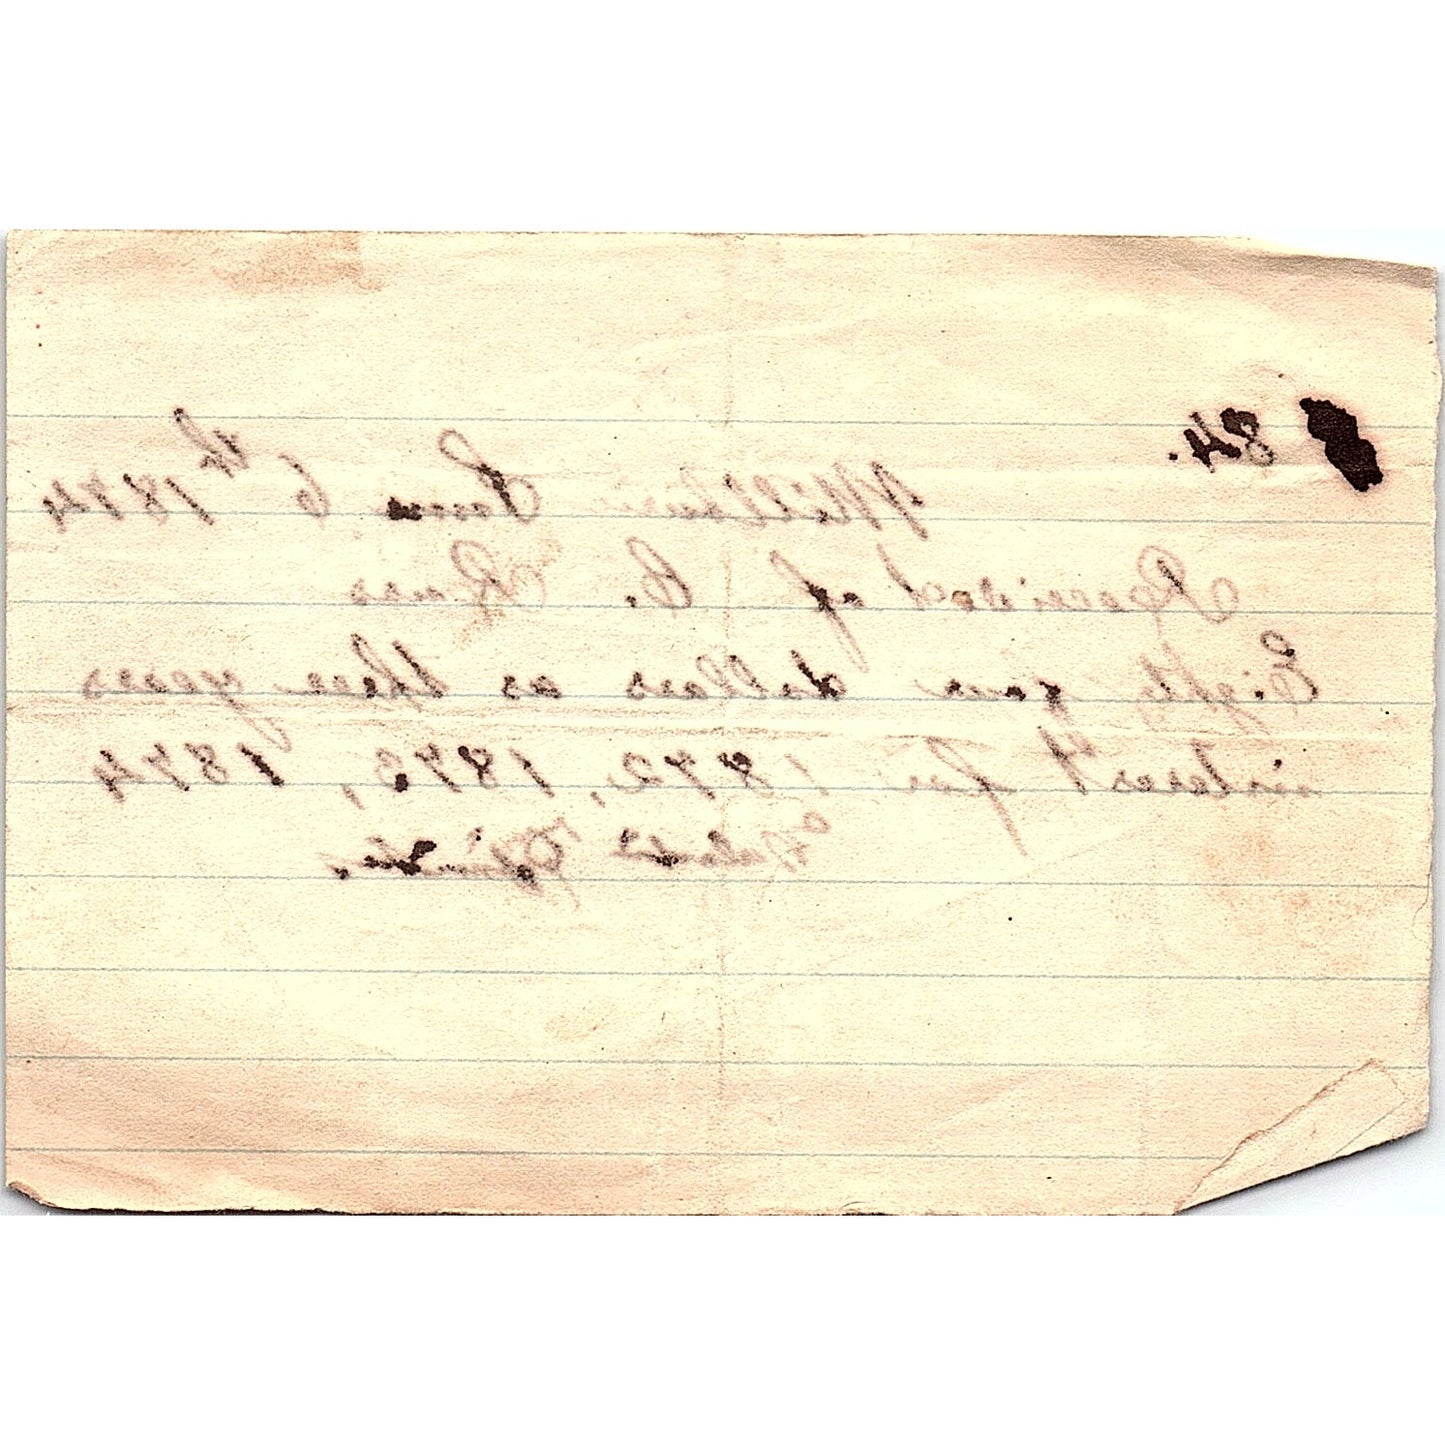 84.
June 6th 1874
Received of C.
Eighty four dollars as three years
interest for 1872, 1873, 1874